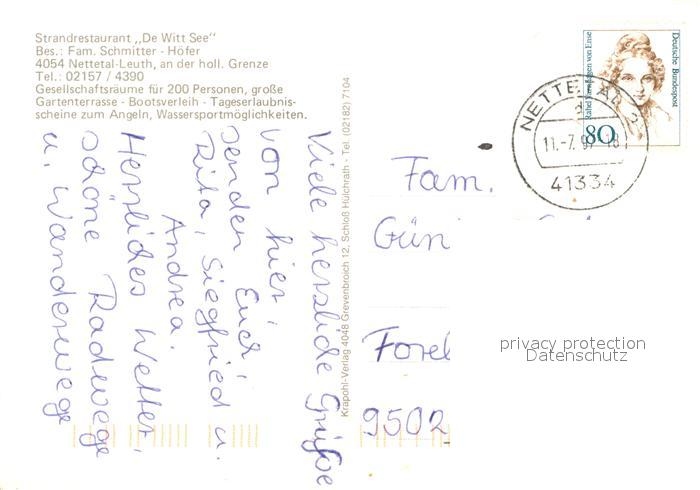 Strandrestaurant „De Witt See"
Bes.: Fam. Schmitter - Höfer
4054 Nettetal-Leuth, an der holl. Grenze
Tel.: 02157 / 4390
Gesellschaftsräume für 200 Personen, große
Gartenterrasse - Bootsverleih - Tageserlaubnis-
scheine zum Angeln, Wassersportmöglichkeiten.
Viele herzliche Grüße
von hier,
senden Euch
Rita, Siegfried u.
Andrea.
Herrliches Wetter,
schöne Radwege
u. Wanderwege
Krapohl-Verlag 4048 Grevenbroich 12, Schloß Hülchrath - Tel. (02182) 7104
Deutsche Bundespost
Rahel Varnhagen von Ense
80
NETTETAL 2
11.-7.97
41334
Fam.
Gün
Forel
9502
privacy protection
Datenschutz